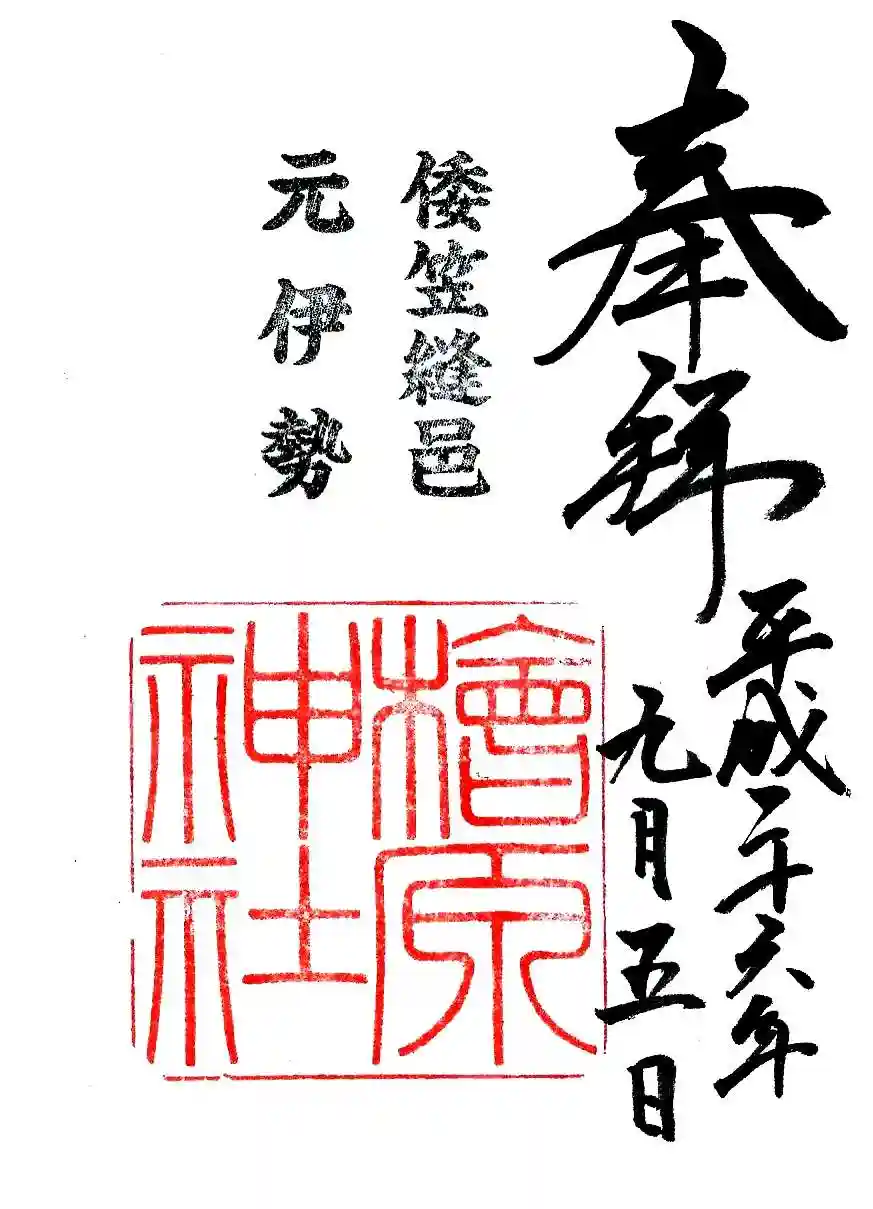 奉拜
平成二十六年
九月五日
倭笠縫邑
元伊勢
檜原
神社